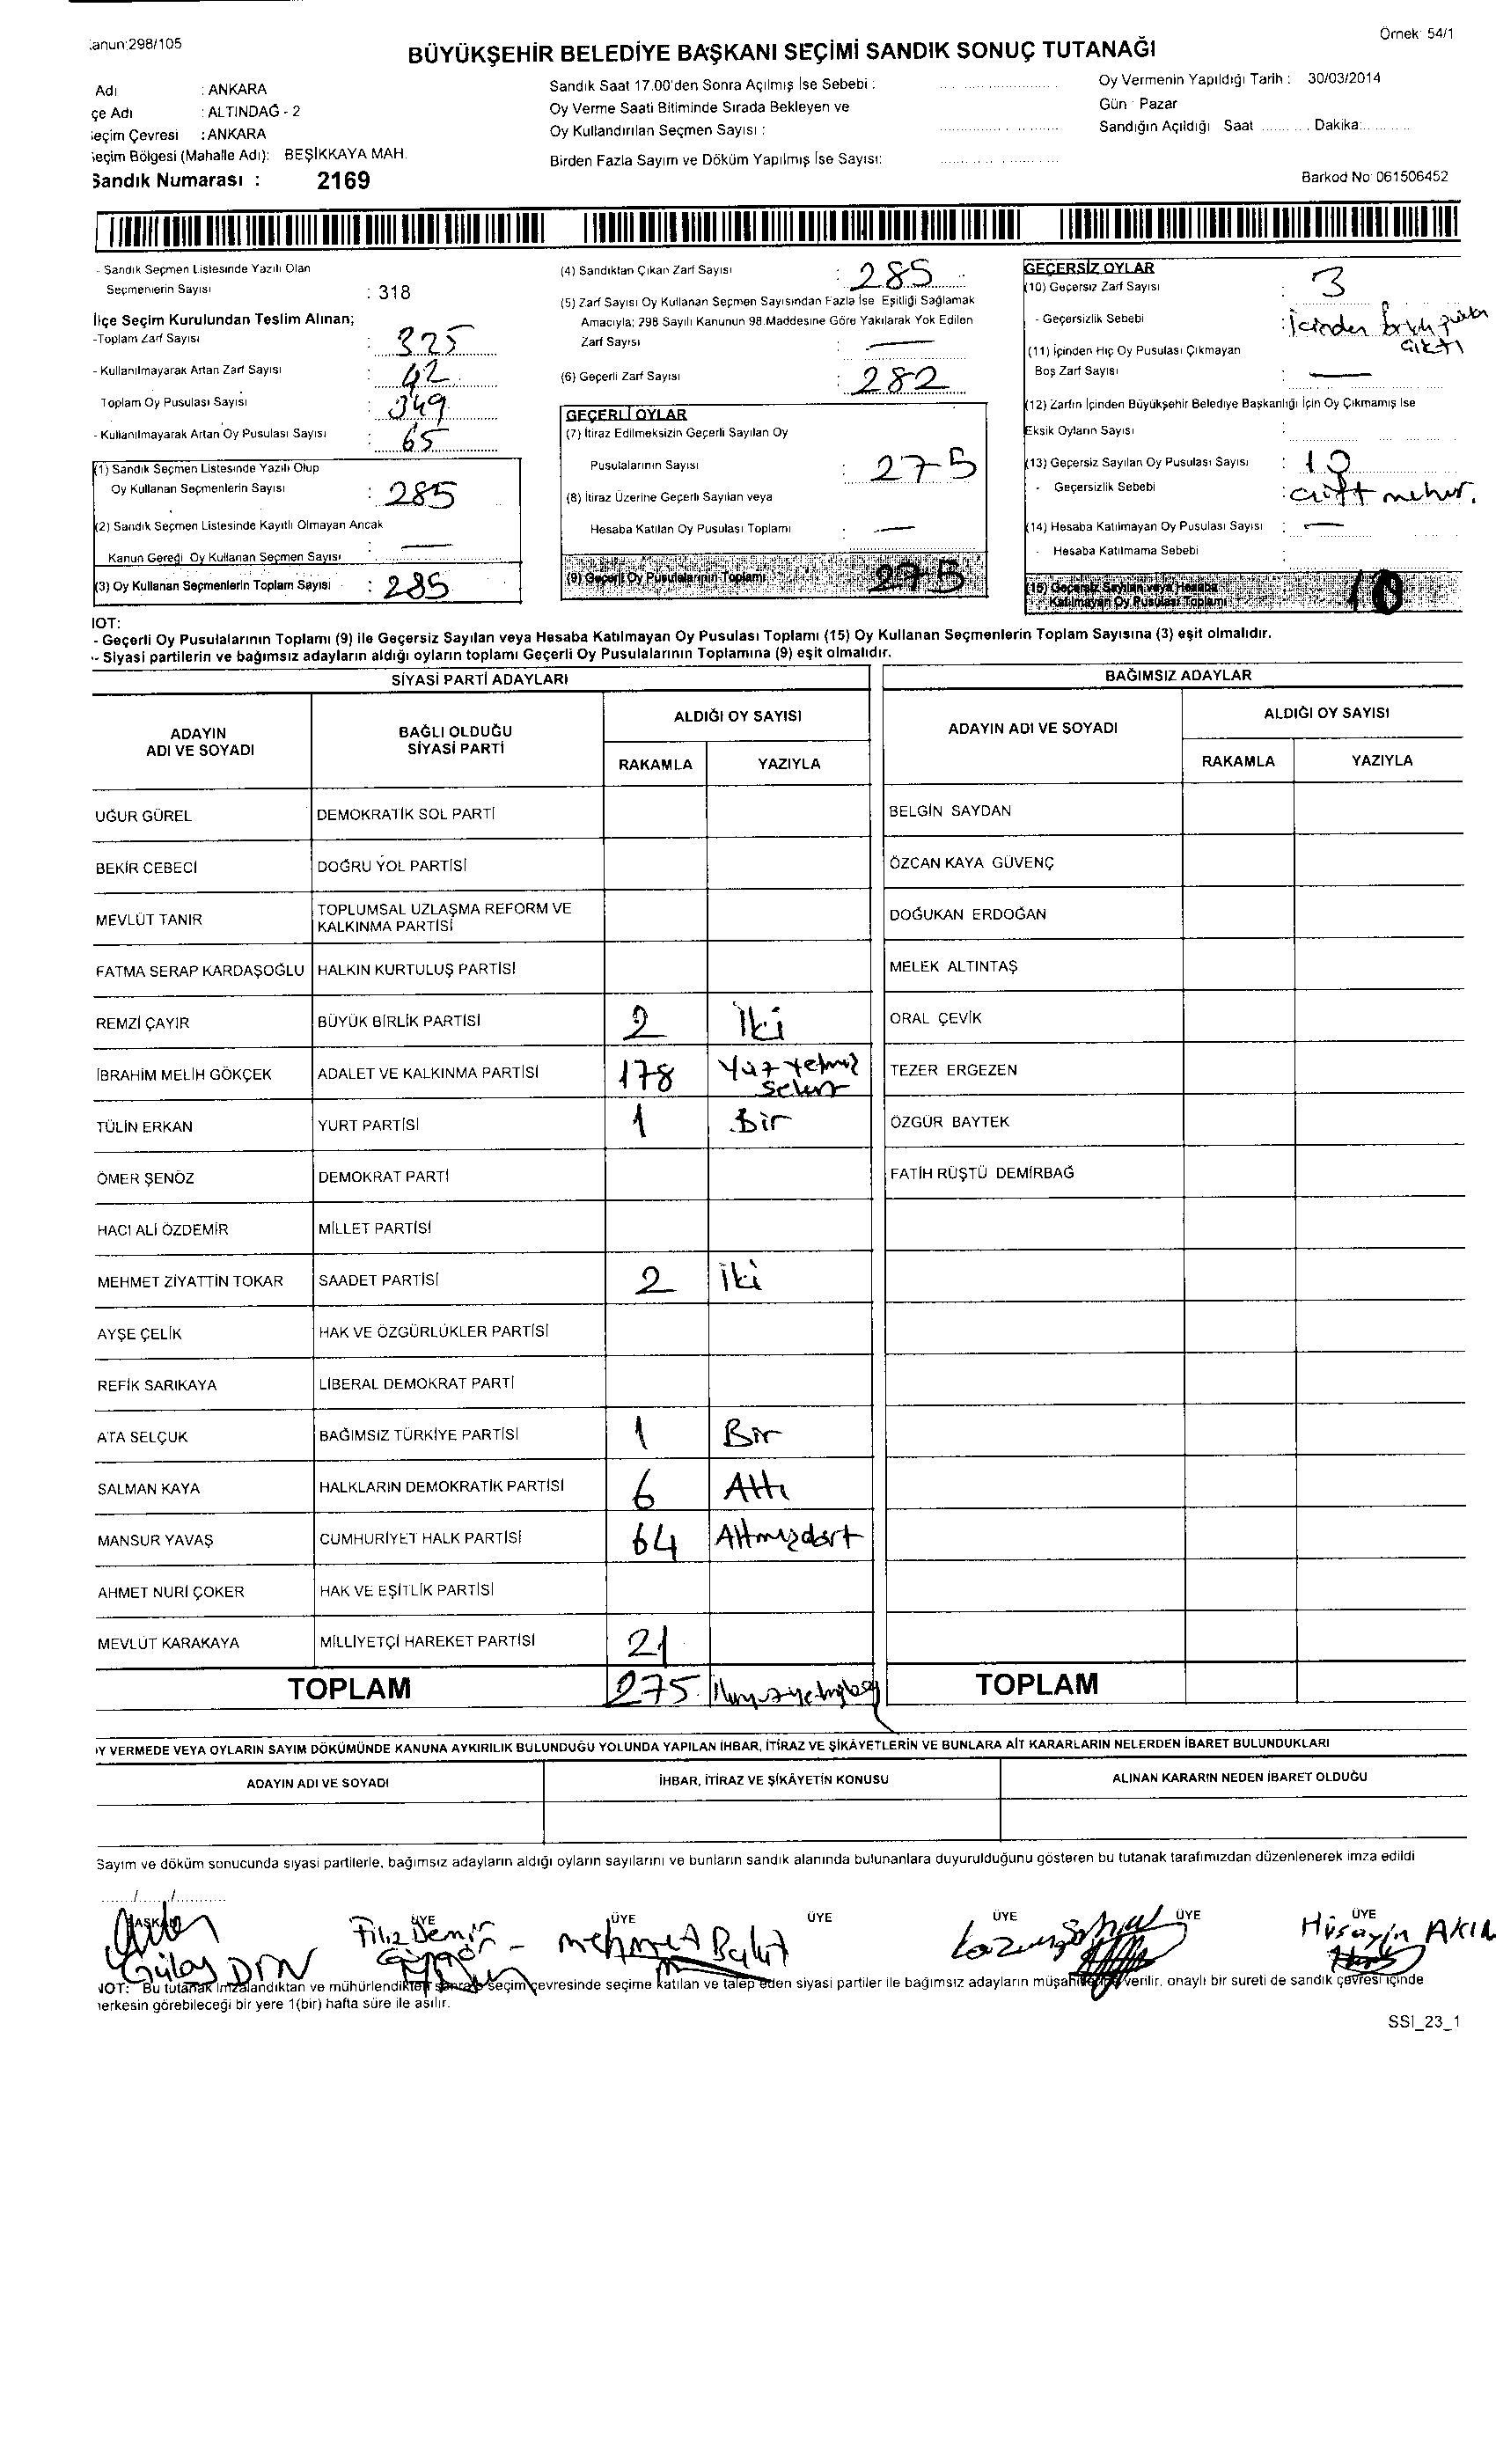 Kanun:298/105
Örnek: 54/1
BÜYÜKŞEHİR BELEDİYE BAŞKANI SEÇİMİ SANDIK SONUÇ TUTANAĞI
Adı : ANKARA
çe Adı : ALTINDAĞ - 2
eçim Çevresi : ANKARA
eçim Bölgesi (Mahalle Adı): BEŞİKKAYA MAH.
Sandık Numarası : 2169
Sandık Saat 17.00'den Sonra Açılmış İse Sebebi :
Oy Verme Saati Bitiminde Sırada Bekleyen ve
Oy Kullandırılan Seçmen Sayısı :
Birden Fazla Sayım ve Döküm Yapılmış İse Sayısı:
Oy Vermenin Yapıldığı Tarih : 30/03/2014
Gün : Pazar
Sandığın Açıldığı Saat .......... Dakika:..........
Barkod No: 061506452
- Sandık Seçmen Listesinde Yazılı Olan
Seçmenlerin Sayısı : 318
İlçe Seçim Kurulundan Teslim Alınan;
-Toplam Zarf Sayısı : 325
- Kullanılmayarak Artan Zarf Sayısı : 42
Toplam Oy Pusulası Sayısı : 349
- Kullanılmayarak Artan Oy Pusulası Sayısı : 65
(1) Sandık Seçmen Listesinde Yazılı Olup
Oy Kullanan Seçmenlerin Sayısı : 285
(2) Sandık Seçmen Listesinde Kayıtlı Olmayan Ancak
Kanun Gereği Oy Kullanan Seçmen Sayısı : —
(3) Oy Kullanan Seçmenlerin Toplam Sayısı : 285
(4) Sandıktan Çıkan Zarf Sayısı : 285
(5) Zarf Sayısı Oy Kullanan Seçmen Sayısından Fazla İse Eşitliği Sağlamak
Amacıyla; 298 Sayılı Kanunun 98.Maddesine Göre Yakılarak Yok Edilen
Zarf Sayısı : —
(6) Geçerli Zarf Sayısı : 282
GEÇERLİ OYLAR
(7) İtiraz Edilmeksizin Geçerli Sayılan Oy
Pusulalarının Sayısı : 275
(8) İtiraz Üzerine Geçerli Sayılan veya
Hesaba Katılan Oy Pusulası Toplamı : —
(9) Geçerli Oy Pusulalarının Toplamı 275
GEÇERSİZ OYLAR
(10) Geçersiz Zarf Sayısı : 3
- Geçersizlik Sebebi : İçinden
çıktı
(11) İçinden Hiç Oy Pusulası Çıkmayan
Boş Zarf Sayısı : —
(12) Zarfın İçinden Büyükşehir Belediye Başkanlığı İçin Oy Çıkmamış İse
Eksik Oyların Sayısı :
(13) Geçersiz Sayılan Oy Pusulası Sayısı : 10
- Geçersizlik Sebebi : Çift mühür.
(14) Hesaba Katılmayan Oy Pusulası Sayısı : —
- Hesaba Katılmama Sebebi
(15) Geçersiz Sayılan veya Hesaba
Katılmayan Oy Pusulası Toplamı 10
NOT:
- Geçerli Oy Pusulalarının Toplamı (9) ile Geçersiz Sayılan veya Hesaba Katılmayan Oy Pusulası Toplamı (15) Oy Kullanan Seçmenlerin Toplam Sayısına (3) eşit olmalıdır.
- Siyasi partilerin ve bağımsız adayların aldığı oyların toplamı Geçerli Oy Pusulalarının Toplamına (9) eşit olmalıdır.
SİYASİ PARTİ ADAYLARI
ADAYIN ADI VE SOYADI BAĞLI OLDUĞU SİYASİ PARTİ ALDIĞI OY SAYISI
RAKAMLA YAZIYLA
UĞUR GÜREL DEMOKRATİK SOL PARTİ
BEKİR CEBECİ DOĞRU YOL PARTİSİ
MEVLÜT TANIR TOPLUMSAL UZLAŞMA REFORM VE KALKINMA PARTİSİ
FATMA SERAP KARDAŞOĞLU HALKIN KURTULUŞ PARTİSİ
REMZİ ÇAYIR BÜYÜK BİRLİK PARTİSİ 2 İki
İBRAHİM MELİH GÖKÇEK ADALET VE KALKINMA PARTİSİ 178 Yüz yetmiş sekiz
TÜLİN ERKAN YURT PARTİSİ 1 Bir
ÖMER ŞENÖZ DEMOKRAT PARTİ
HACI ALİ ÖZDEMİR MİLLET PARTİSİ
MEHMET ZİYATTİN TOKAR SAADET PARTİSİ 2 İki
AYŞE ÇELİK HAK VE ÖZGÜRLÜKLER PARTİSİ
REFİK SARIKAYA LİBERAL DEMOKRAT PARTİ
ATA SELÇUK BAĞIMSIZ TÜRKİYE PARTİSİ 1 Bir
SALMAN KAYA HALKLARIN DEMOKRATİK PARTİSİ 6 Altı
MANSUR YAVAŞ CUMHURİYET HALK PARTİSİ 64 Altmışdört
AHMET NURİ ÇOKER HAK VE EŞİTLİK PARTİSİ
MEVLÜT KARAKAYA MİLLİYETÇİ HAREKET PARTİSİ 21
TOPLAM 275 İkiyüzyetmişbeş
BAĞIMSIZ ADAYLAR
ADAYIN ADI VE SOYADI ALDIĞI OY SAYISI
RAKAMLA YAZIYLA
BELGİN SAYDAN
ÖZCAN KAYA GÜVENÇ
DOĞUKAN ERDOĞAN
MELEK ALTINTAŞ
ORAL ÇEVİK
TEZER ERGEZEN
ÖZGÜR BAYTEK
FATİH RÜŞTÜ DEMİRBAĞ
TOPLAM
OY VERMEDE VEYA OYLARIN SAYIM DÖKÜMÜNDE KANUNA AYKIRILIK BULUNDUĞU YOLUNDA YAPILAN İHBAR, İTİRAZ VE ŞİKÂYETLERİN VE BUNLARA AİT KARARLARIN NELERDEN İBARET BULUNDUKLARI
ADAYIN ADI VE SOYADI İHBAR, İTİRAZ VE ŞİKÂYETİN KONUSU ALINAN KARARIN NEDEN İBARET OLDUĞU
Sayım ve döküm sonucunda siyasi partilerle, bağımsız adayların aldığı oyların sayılarını ve bunların sandık alanında bulunanlara duyurulduğunu gösteren bu tutanak tarafımızdan düzenlenerek imza edildi
....../....../............
BAŞKAN ÜYE ÜYE ÜYE ÜYE ÜYE ÜYE
Gülay Filiz Demir Mehmet Hüseyin AKIN
NOT: Bu tutanak imzalandıktan ve mühürlendikten sonra seçim çevresinde seçime katılan ve talep eden siyasi partiler ile bağımsız adayların müşahitlerine verilir, onaylı bir sureti de sandık çevresi içinde
herkesin görebileceği bir yere 1(bir) hafta süre ile asılır.
SSI_23_1